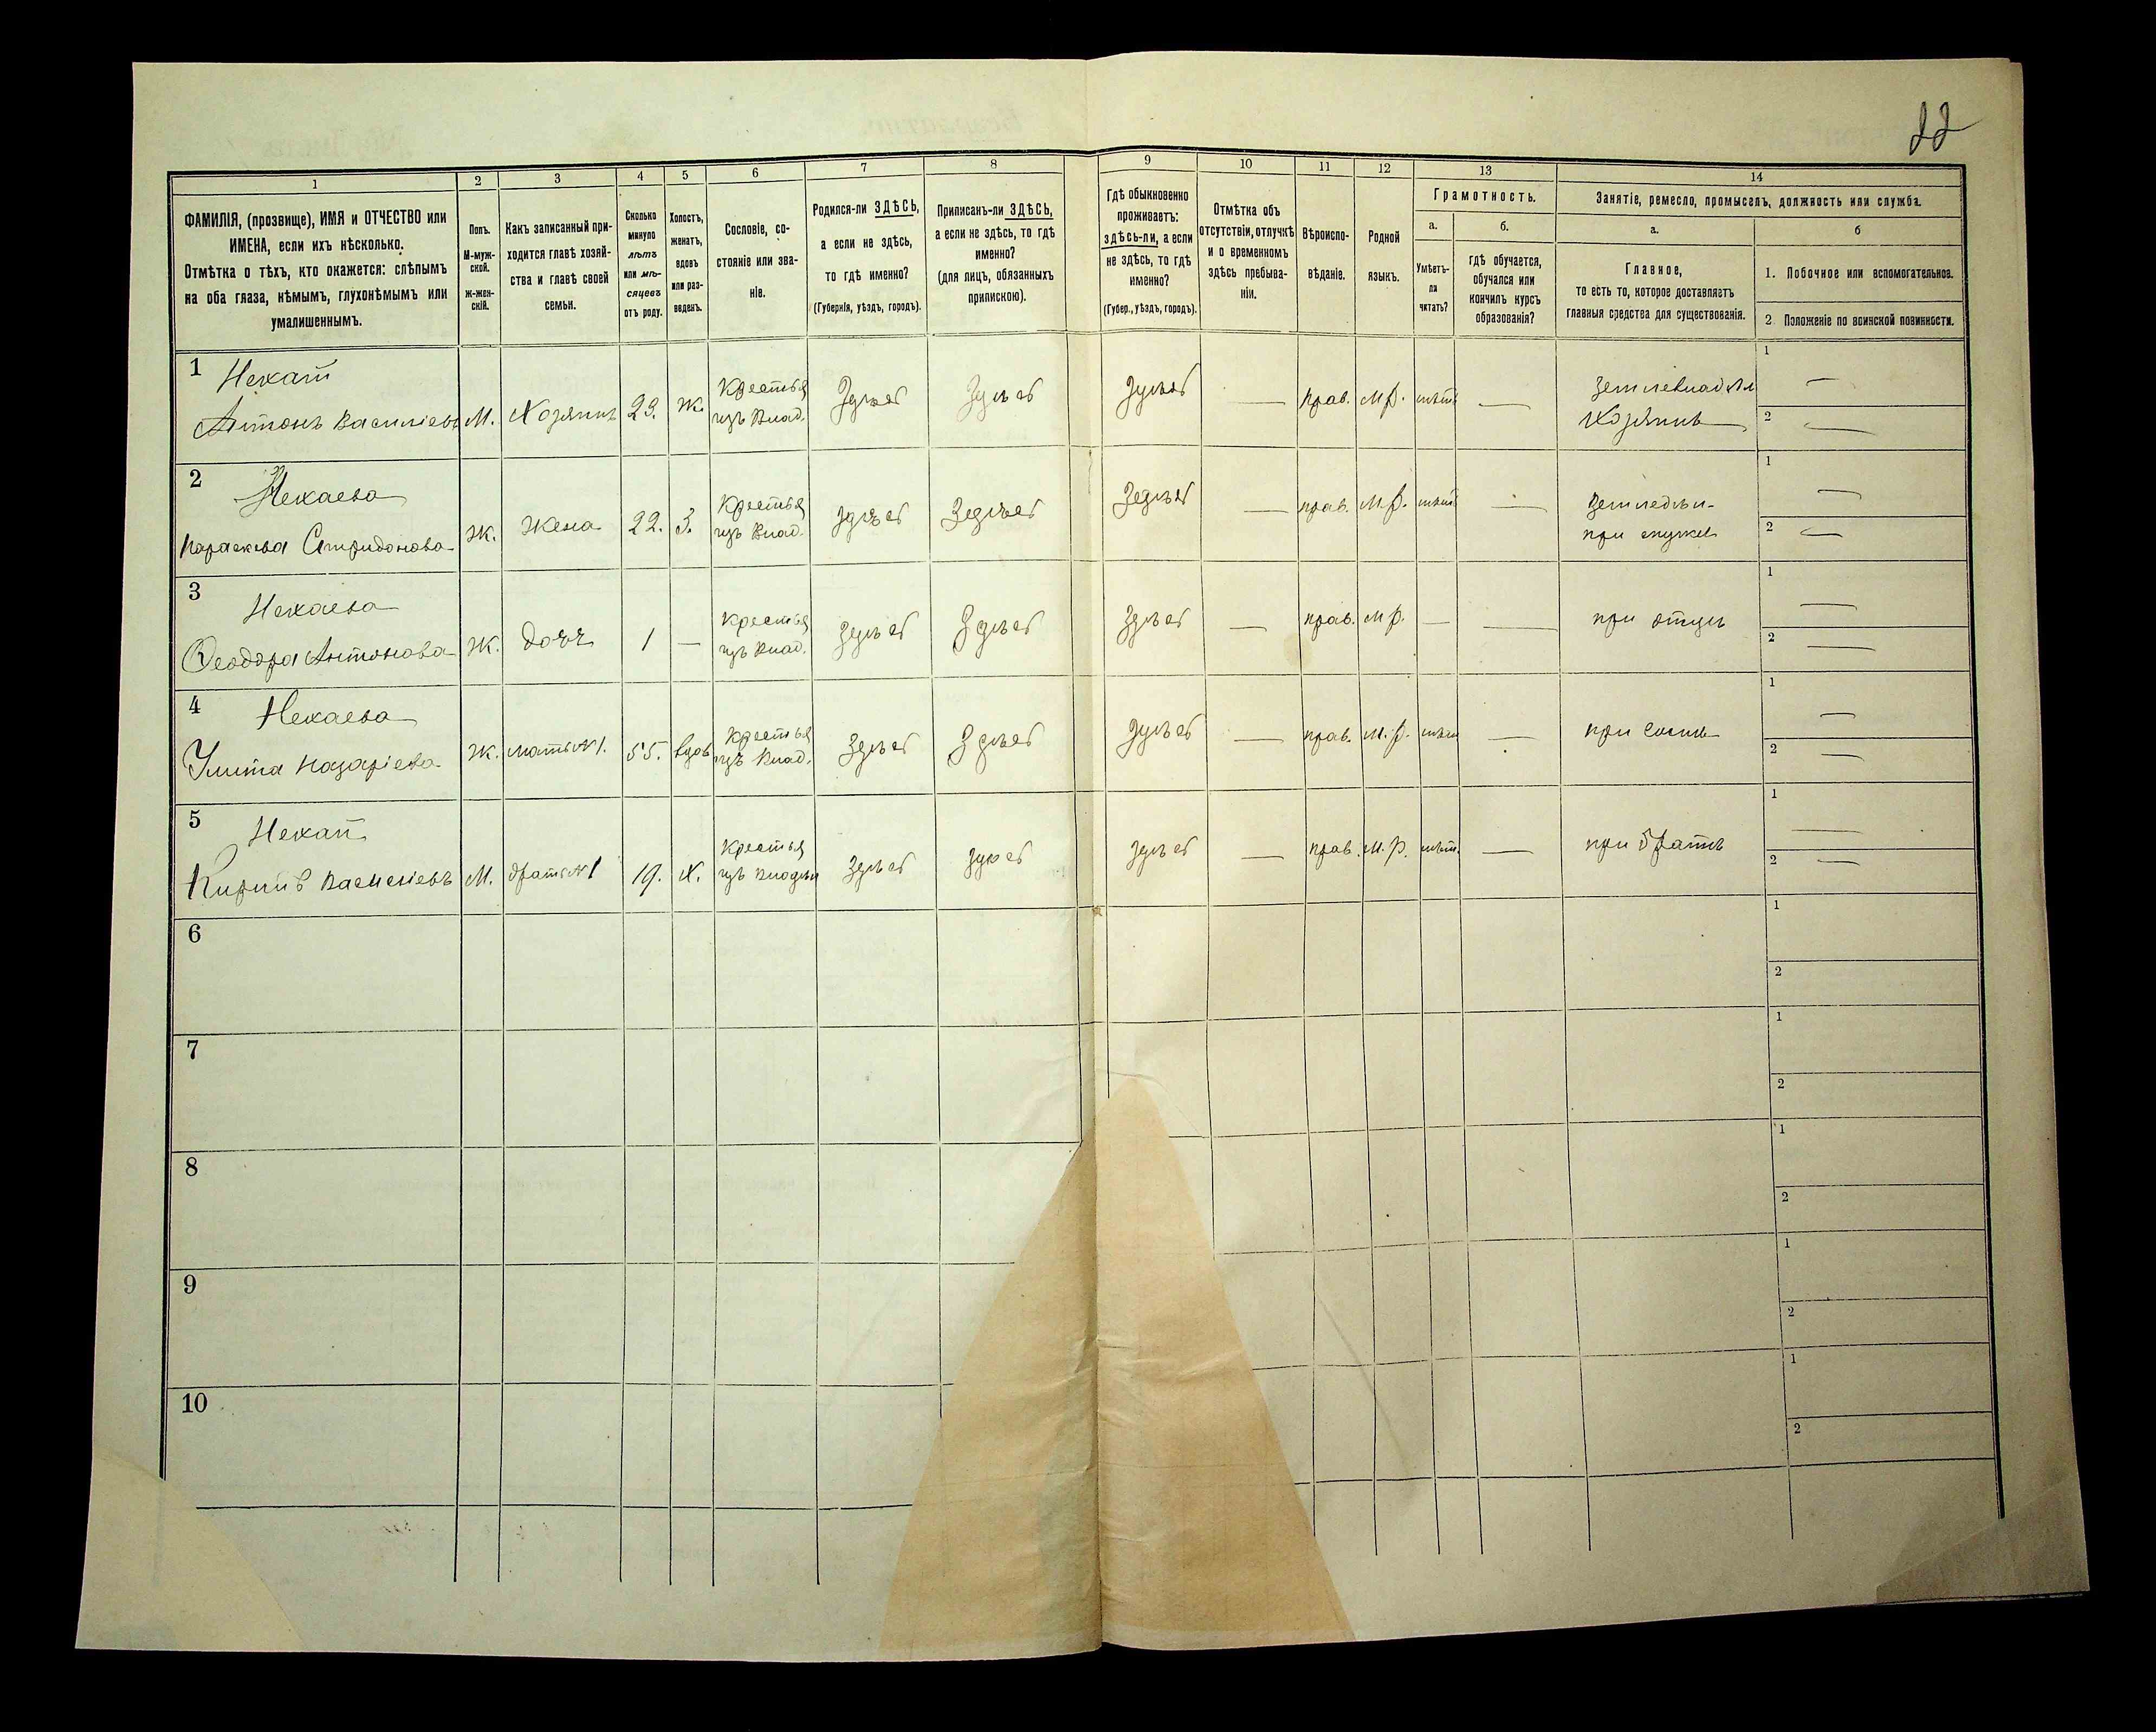 22
1
2
3
4
5
6
7
8
9
10
11
12
13
14
ФАМИЛІЯ, (прозвище), ИМЯ и ОТЧЕСТВО или
ИМЕНА, если ихъ нѣсколько.
Отмѣтка о тѣхъ, кто окажется: слѣпымъ
на оба глаза, нѣмымъ, глухонѣмымъ или
умалишеннымъ.
Полъ.
М-муж-
ской.
ж-жен-
скій.
Какъ записанный при-
ходится главѣ хозяй-
ства и главѣ своей
семьи.
Сколько
минуло
лѣтъ
или мѣ-
сяцевъ
отъ роду.
Холостъ,
женатъ,
вдовъ
или раз-
веденъ.
Сословіе, со-
стояніе или зва-
ніе.
Родился-ли ЗДѢСЬ,
а если не здѣсь,
то гдѣ именно?
(Губернія, уѣздъ, городъ).
Приписанъ-ли ЗДѢСЬ,
а если не здѣсь, то гдѣ
именно?
(для лицъ, обязанныхъ
припискою).
Гдѣ обыкновенно
проживаетъ:
здѣсь-ли, а если
не здѣсь, то гдѣ
именно?
(Губер., уѣздъ, городъ).
Отмѣтка объ
отсутствіи, отлучкѣ
и о временномъ
здѣсь пребыва-
ніи.
Вѣроиспо-
вѣданіе.
Родной
языкъ.
Грамотность.
а.
Умѣетъ-
ли
читать?
б.
гдѣ обучается,
обучался или
кончилъ курсъ
образованія?
Занятіе, ремесло, промыселъ, должность или служба.
а.
Главное,
то есть то, которое доставляетъ
главныя средства для существованія.
б
1. Побочное или вспомогательное.
2 Положеніе по воинской повинности.
1 Некай
Антонъ Василіевъ М. Хозяинъ 29. Ж. Крестья изъ Влад. Здѣсь Здѣсь Здѣсь — прав. М.р. нѣтъ — Хозяинъ 1 — 2 —
2 Некаева
Параскева Спиридонова Ж. Жена 22. З. Крестья изъ Влад. Здѣсь Здѣсь Здѣсь — прав. М.р. нѣтъ — при мужѣ 1 — 2 —
3 Некаева
Феодора Антонова Ж. дочь 1 — Крестья изъ Влад. Здѣсь Здѣсь Здѣсь — прав. М.р. — — при отцѣ 1 — 2 —
4 Некаева
Улита Назаріева Ж. мать №1. 55. вдов Крестья изъ Влад. Здѣсь Здѣсь Здѣсь — прав. М.р. нѣтъ — при сынѣ 1 — 2 —
5 Некай
Кирилъ Василіевъ М. братъ №1 19. Х. Крестья изъ Здѣсь Здѣсь Здѣсь — прав. М.р. нѣт. — при братѣ 1 — 2 —
6 1
2
7 1
2
8 1
2
9 1
2
10 1
2